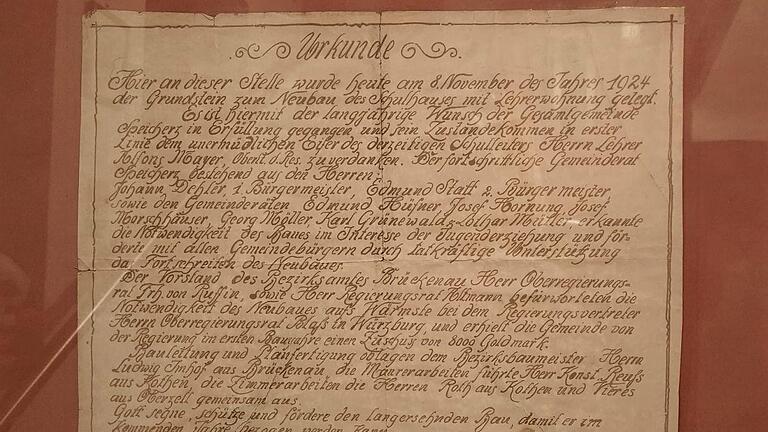 Urkunde
Hier an dieser Stelle wurde heute am 8. November des Jahres 1924
der Grundstein zum Neubau des Schulhauses mit Lehrerwohnung gelegt.
Es ist hiermit der langjährige Wunsch der Gesamtgemeinde
Speicherz in Erfüllung gegangen und sein Zustandekommen in erster
Linie dem unermüdlichen Eifer des derzeitigen Schulleiters Herrn Lehrer
Alfons Mayer, Obent. d. Res. zu verdanken. Der fortschrittliche Gemeinderat
Speicherz bestehend aus den Herren:
Johann Dehler 1. Bürgermeister, Edmund Statt 2. Bürgermeister
sowie den Gemeinderäten Edmund Hüfner Josef Hornung Josef
Morschhäuser, Georg Möller Karl Grünewald, Lothar Meißler, erkannte
die Notwendigkeit des Baues im Interesse der Jugenderziehung und för-
derte mit allen Gemeindebürgern durch tatkräftige Unterstützung
das Fortschreiten des Neubaues.
Der Vorstand des Bezirksamtes Brückenau Herr Oberregierungs-
rat Frh. von Ruffin, sowie Herr Regierungsrat befürworteten die
Notwendigkeit des Neubaues aufs Wärmste bei dem Regierungsvertreter
Herrn Oberregierungsrat in Würzburg, und erhielt die Gemeinde von
der Regierung im ersten Baujahre einen Zuschuß von 8000 Goldmark.
Bauleitung und Planfertigung oblagen dem Bezirksbaumeister Herrn
Ludwig Imhof aus Brückenau, die Maurerarbeiten führte Herr Konst. Reuss
aus Kothen, die Zimmerarbeiten die Herren Ruth aus Kothen und Vieres
aus Oberzell gemeinsam aus.
Gott segne, schütze und fördere den langersehnten Bau, damit er im
kommenden Jahre bezogen werden kann.